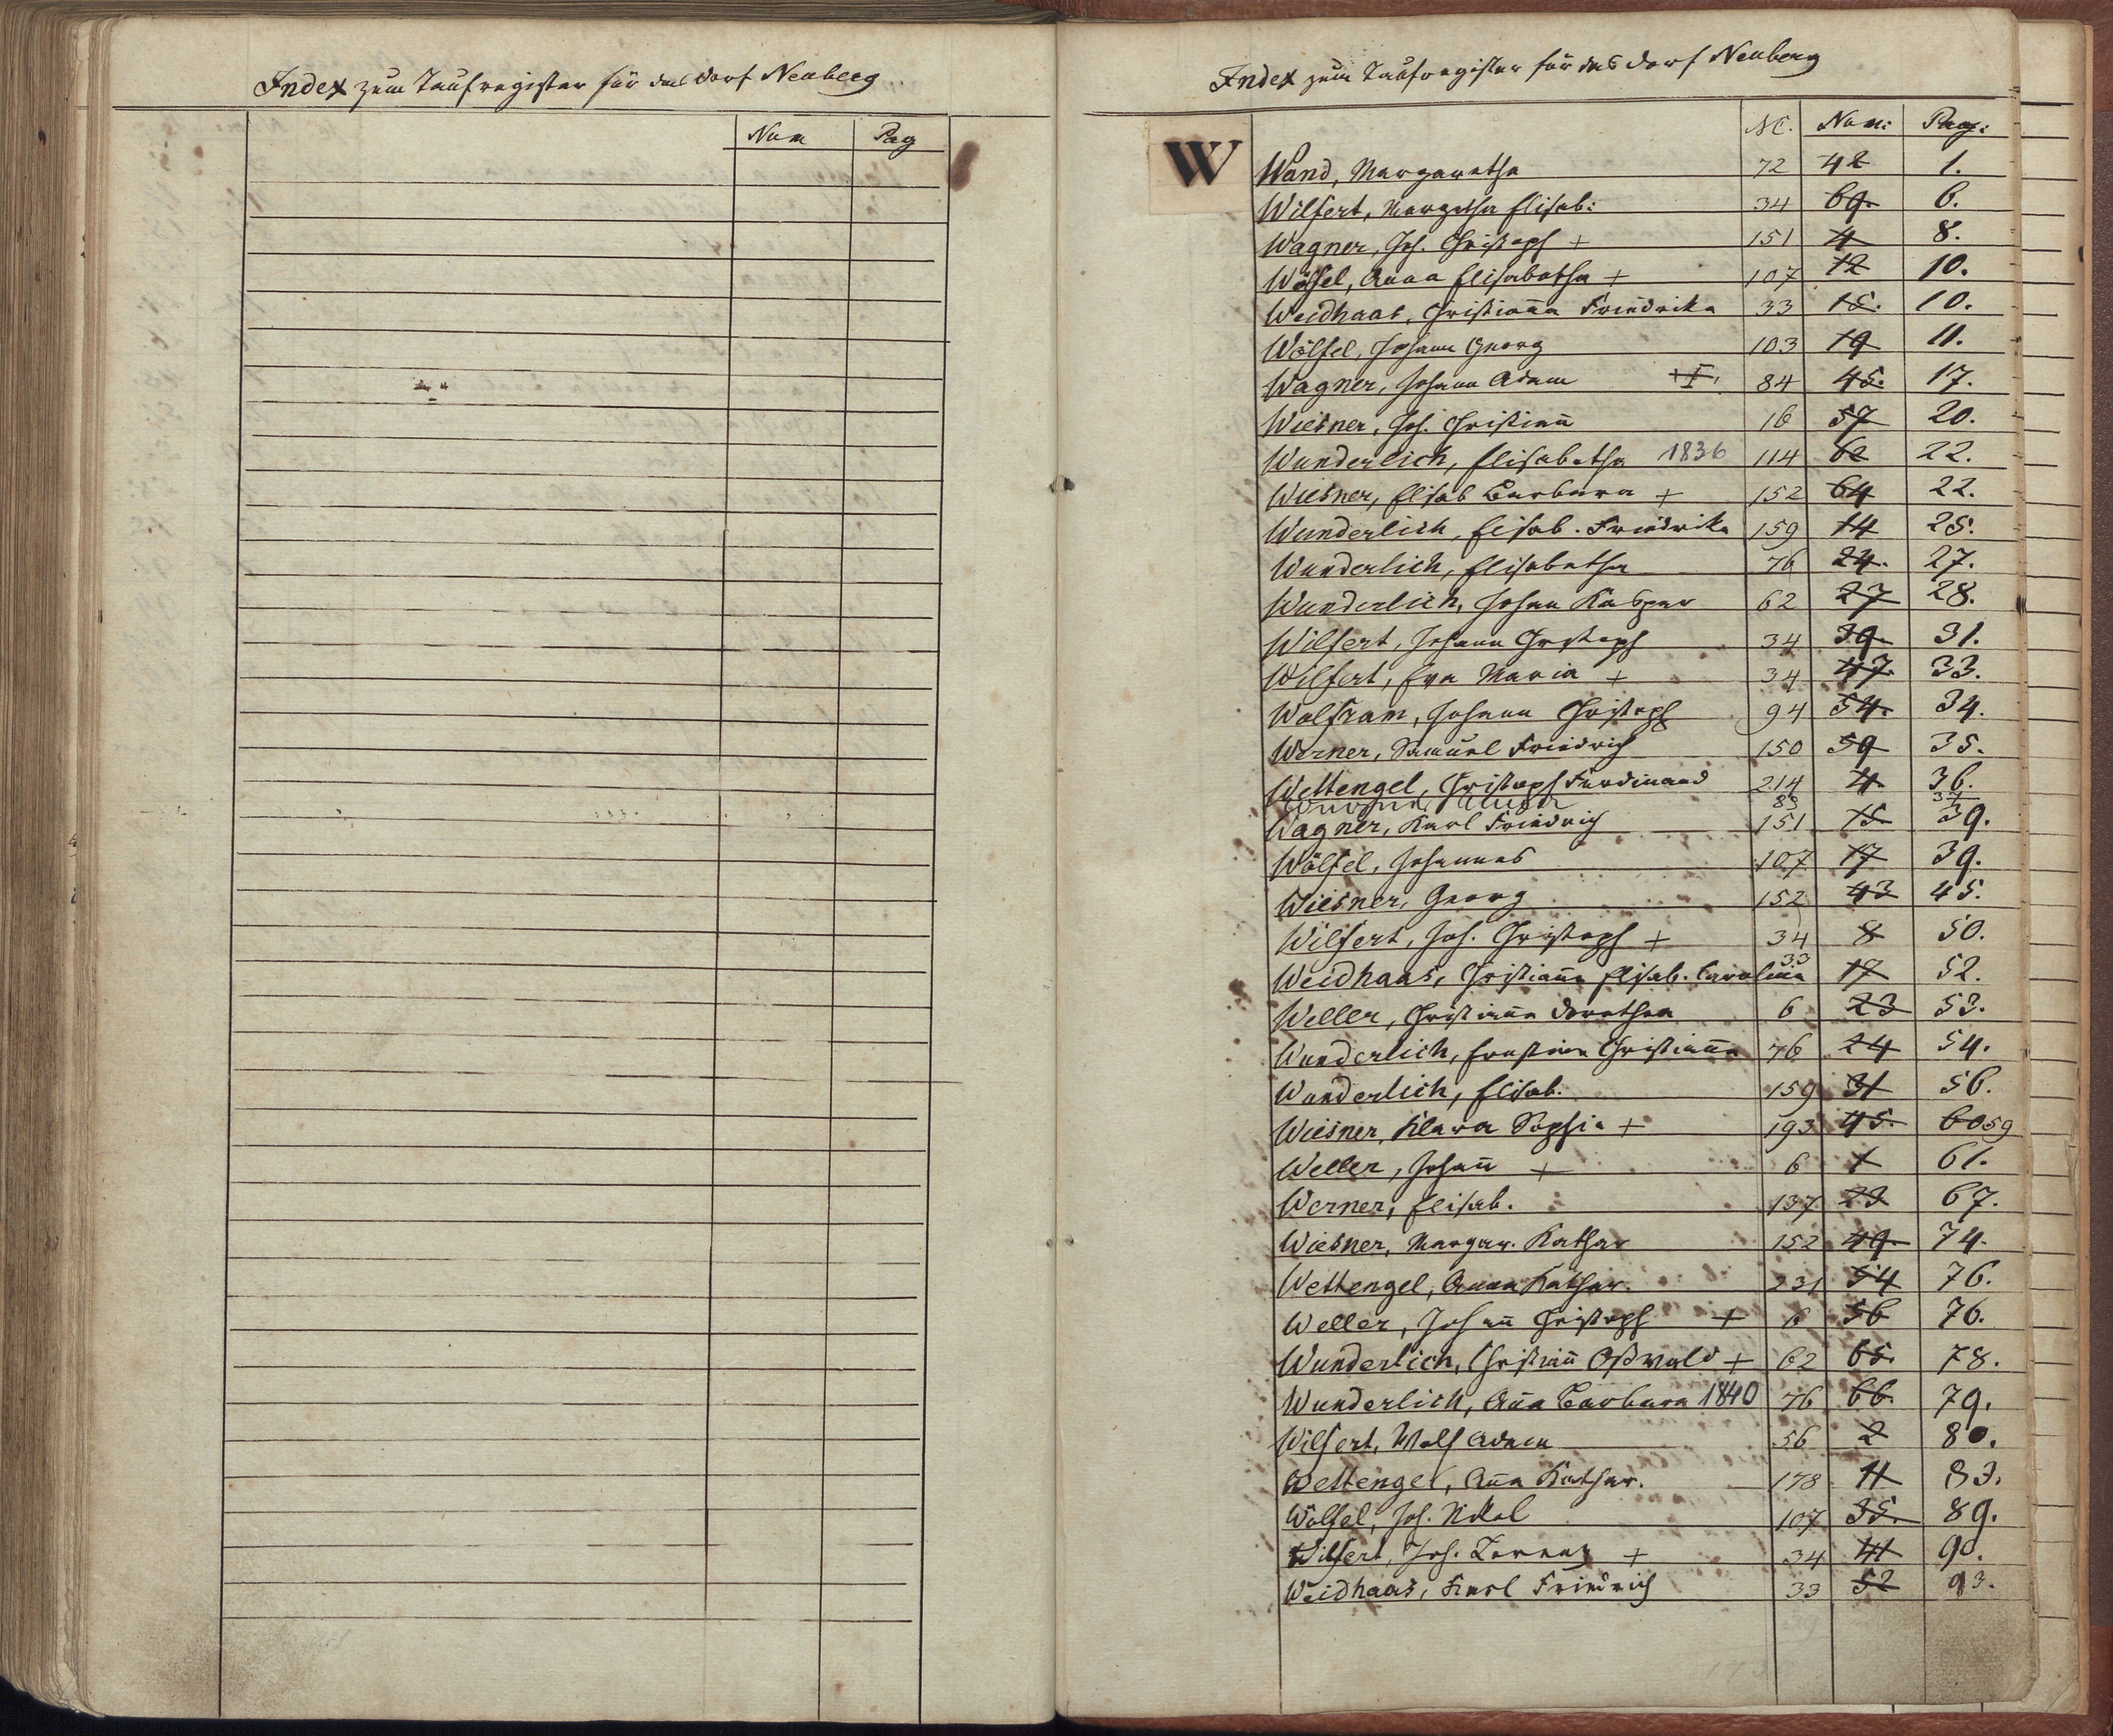 Index zum Taufregister für das Dorf Neuberg
Num Pag
Index zum Taufregister für das Dorf Neuberg
W
NC. Num: Pag:
Wand, Margaretha 72 42 1.
Wilfert, Margetha Elisab: 34 69. 6.
Wagner, Joh. Christoph + 151 4 8.
Wölfel, Anna Elisabetha + 107 12 10.
Weidhaas, Christianna Friedrika 33 15. 10.
Wölfel, Johann Georg 103 19 11.
Wagner, Johann Adam 84 45. 17.
Wiesner, Joh. Christian̄ 16 57 20.
Wunderlich, Elisabetha 1836 114 62 22.
Wiesner, Elisab Barbara + 152 64 22.
Wunderlich, Elisab. Friedrika 159 14 25.
Wunderlich, Elisabetha 76 24. 27.
Wunderlich, Johan Kaspar 62 27 28.
Wilfert, Johann Christoph 34 39. 31.
Wilfert, Eva Maria + 34 47. 33.
Wolfram, Johann Christoph 94 54. 34.
Werner, Samuel Friedrich 150 59 35.
Wettengel, Christoph Ferdinand 214 4. 36.
83 37
Wagner, Karl Friedrich 151 15 39.
Wölfel, Johannes 107 17 39.
Wiesner, Georg 152 43 45.
Wilfert, Joh. Christoph + 34 8 50.
Weidhaas, Christian̄a Elisab. Carolina 33 17 52.
Weller, Christian̄a Dorothea 6 23 53.
Wunderlich, Ernstine Christian̄a 76 24 54.
Wunderlich, Elisab. 159 31 56.
Wiesner, Klara Sophia + 193 45. 60 59
Weller, Johan̄ + 6 1 61.
Werner, Elisab. 137 23 67.
Wiesner, Margar. Kathar 152 49. 74.
Wettengel, Anna Kathar. 231 54 76.
Weller, Johan̄ Christoph + 6 56 76.
Wunderlich, Christian̄ Oswald + 62 65. 78.
Wunderlich, An̄a Barbara 1840 76 66. 79.
Wilfert, Wolf Adam 56 2 80.
Wettengel, An̄a Kathar. 178 11 83.
Wölfel, Joh. Nikol 107 35. 89.
Wilfert, Joh. Lorenz + 34 41 90.
Weidhaas, Karl Friedrich 33 52 93.